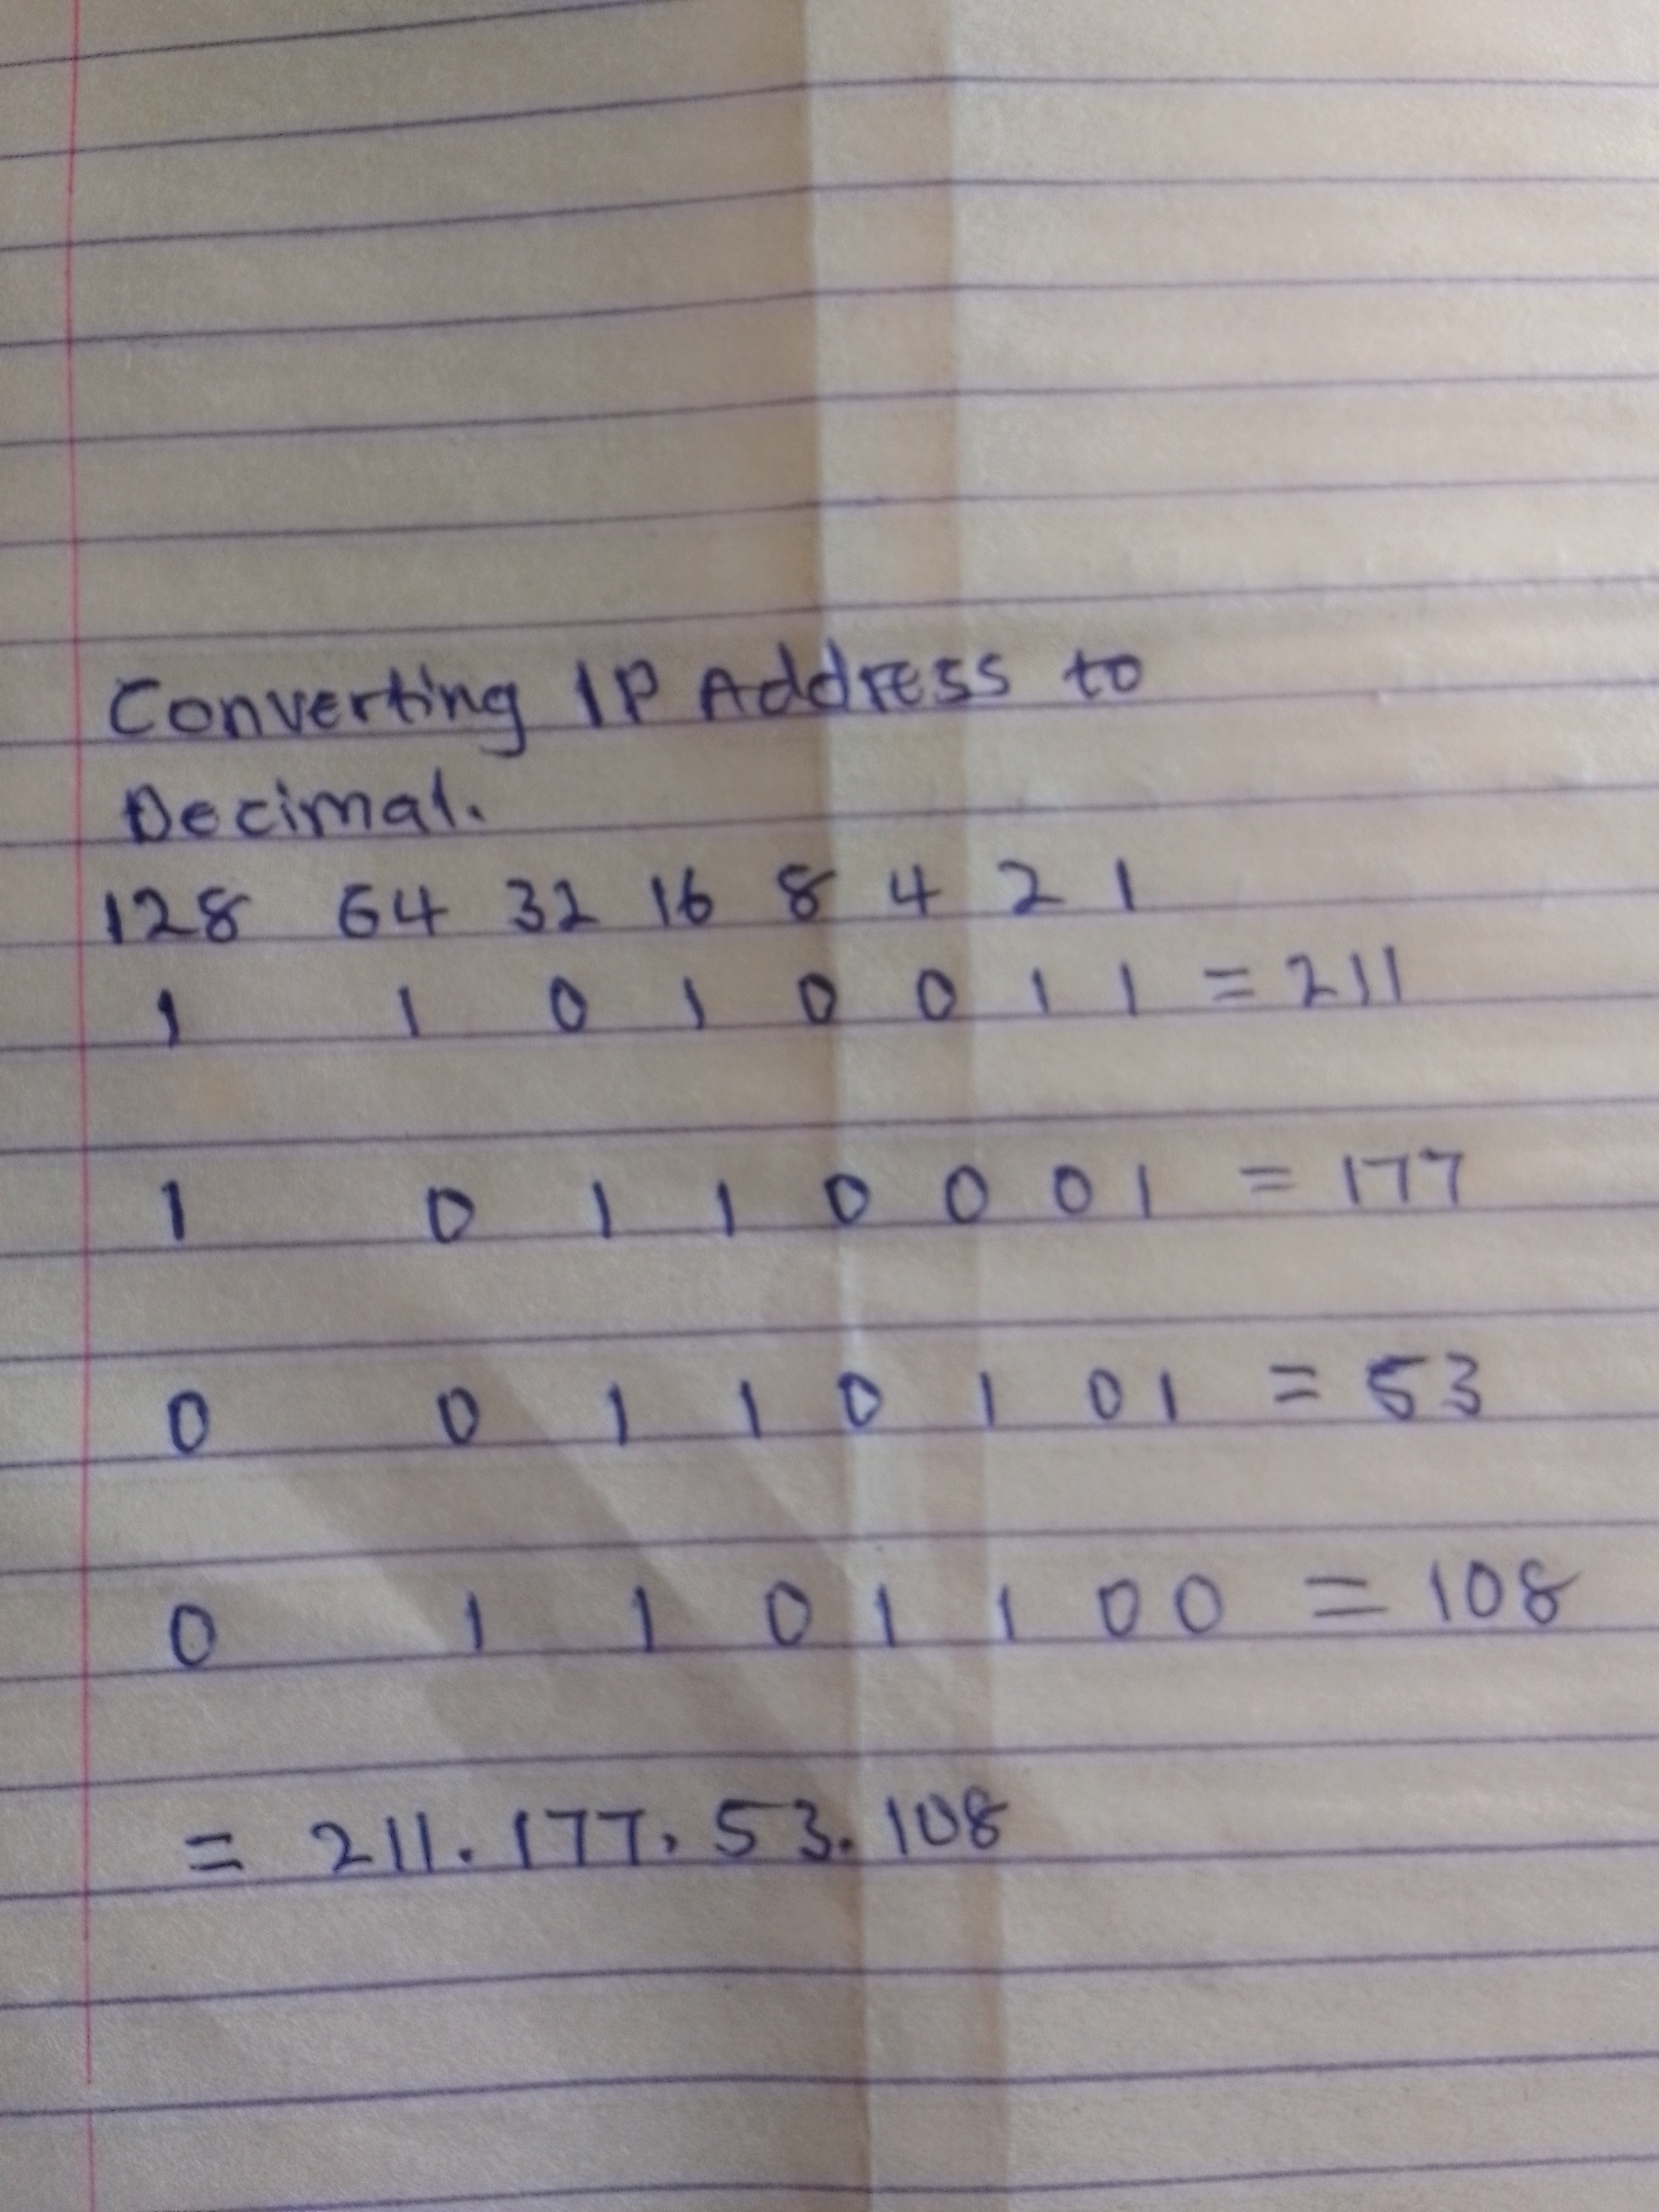 Converting IP Address to
Decimal.
128 64 32 16 8 4 2 1
1 1 0 1 0 0 1 1 = 211
1 0 1 1 0 0 0 1 = 177
0 0 1 1 0 1 0 1 = 53
0 1 1 0 1 1 0 0 = 108
= 211.177.53.108